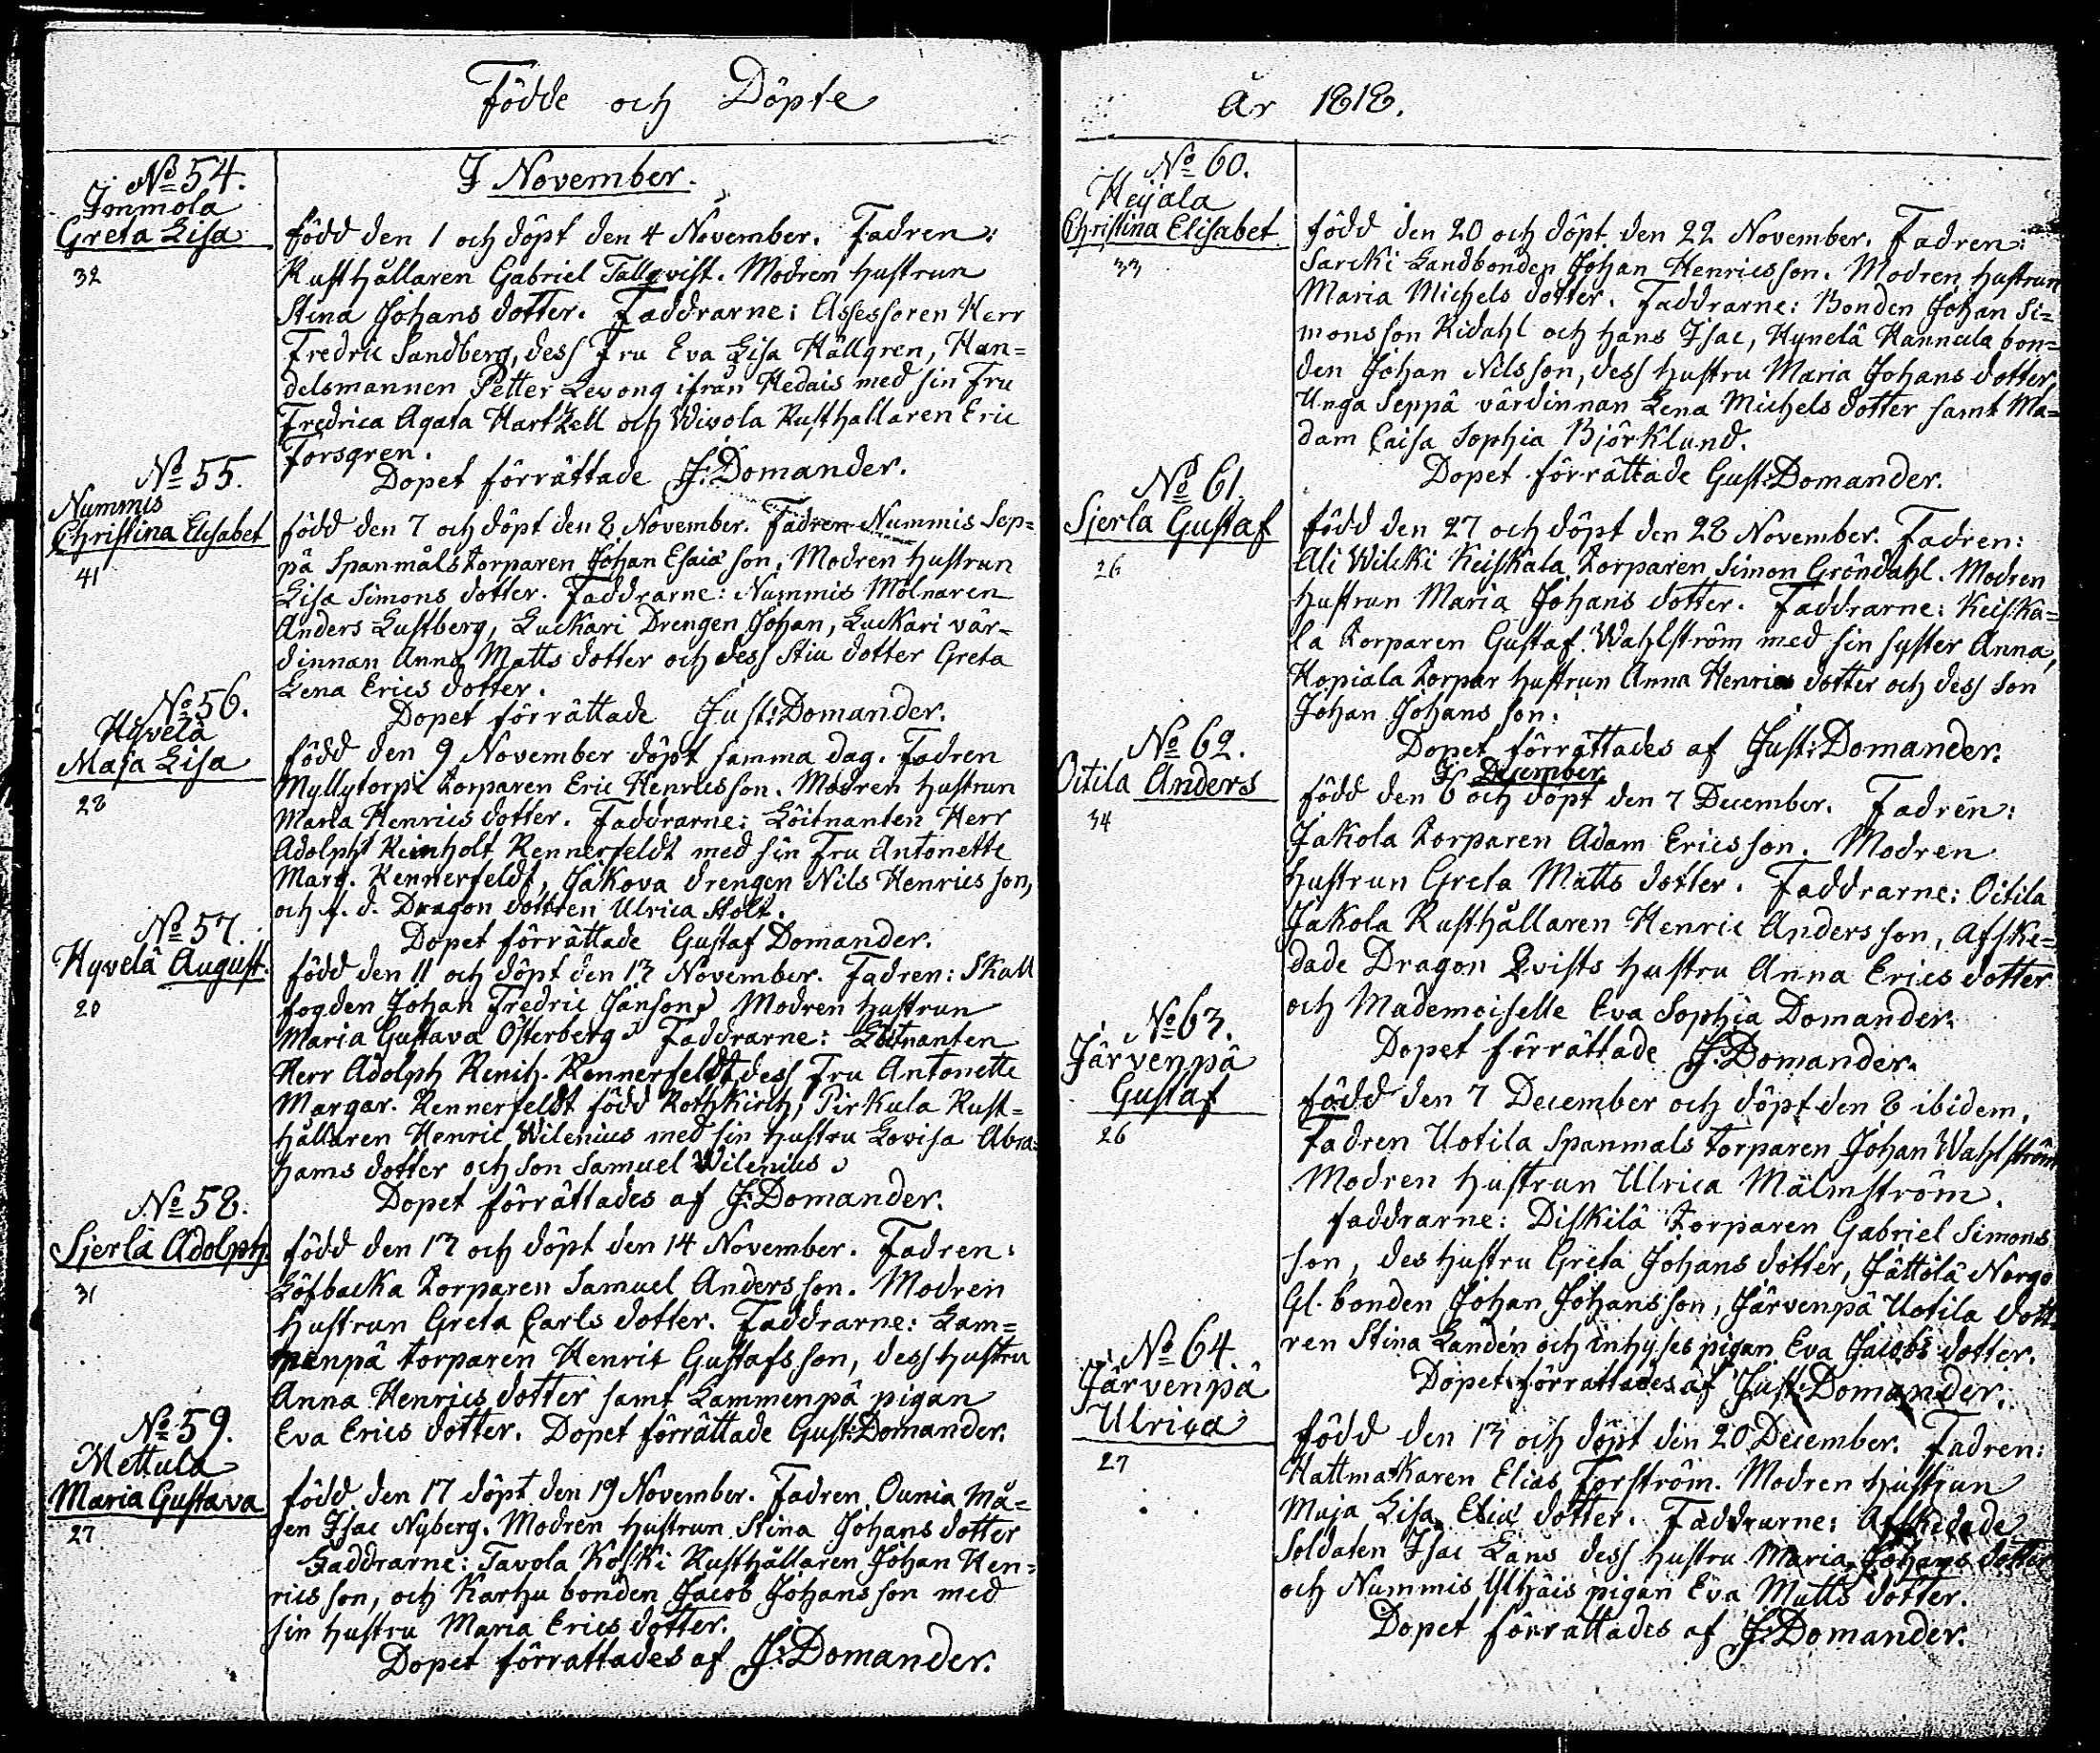 Födde och Döpte
I November.
No 54.
Immola
Greta Lisa
32
född den 1 och döpt den 4 November. Fadren:
Rusthållaren Gabriel Tallqvist. Modren hustrun
Stina Johans dotter. Faddrarne: Assessoren Herr
Fredric Sandberg, dess Fru Eva Lisa Hällgren, Han=
delsmannen Petter Levong ifrån Hedais med sin Fru
Fredrica Agata Hartzell och Wivola Rusthallaren Eric
Forsgren.
Dopet förrättade G: Domander.
No 55.
Nummis
Christina Elisabet
41
född den 7 och döpt den 8 November. Fadren Nummis Sep=
pä Spanmåls torparen Johan Esaiæ son, Modren hustrun
Lisa Simons dotter. Faddrarne: Nummis Mölnaren
Anders Lustberg, Luckari Drengen Johan, Luckari vär=
dinnan Anna Matts dotter och dess Stiu dotter Greta
Lena Erics dotter.
Dopet förrättade Gust: Domander.
No 56.
Hyvelä
Maja Lisa
28
född den 9 November döpt samma dag. Fadren
Myllytorpi torparen Eric Henricsson. Modren hustrun
Maria Henrics dotter. Faddrarne: Löitnanten Herr
Adolph Reinholt Rennerfeldt med sin Fru Antonette
Marg. Rennerfeldt, Jakova drengen Nils Henrics son,
och f. d. Dragon dottren Ulrica Stolt.
Dopet förrättade Gustaf Domander.
No 57.
Hyvelä August.
20
född den 11 och döpt den 13 November. Fadren: Skall
fogden Johan Fredric Jänson. Modren hustrun
Maria Gustava Österberg. Faddrarne: Löitnanten
Herr Adolph Renih. Rennerfeldt, dess Fru Antonette
Margar. Rennerfeldt född Rothkirch, Pirkula Rust=
hållaren Henric Wilenius med sin hustru Lovisa Abra=
hams dotter och son Samuel Wilenius.
Dopet förrättades af G: Domander.
No 58.
Sjerlä Adolph.
31
född den 13 och döpt den 14 November. Fadren:
Löfbacka torparen Samuel Anders son. Modren
hustrun Greta Carls dotter. Faddrarne: Lam=
menpä torparen Henric Gustafs son, dess hustru
Anna Henrics dotter samt Lammenpä pigan
Eva Erics dotter. Dopet förrättade Gust: Domander.
No 59.
Mettula
Maria Gustava
27
född den 17 döpt den 19 November. Fadren Ounia Må=
gen Isac Nyberg. Modren hustrun Stina Johans dotter
Faddrarne: Tavola Koski Rusthållaren Johan Hen=
rics son, och Karhu bonden Jacob Johans son med
sin hustru Maria Erics dotter.
Dopet förrattades af G: Domander.
År 1818.
No 60.
Heijala
Christina Elisabet
33
född den 20 och döpt den 22 November. Fadren:
Sarcki Landbonden Johan Henricsson. Modren hustrun
Maria Michels dotter. Faddrarne: Bonden Johan Si=
monsson Ridahl och hans Isac, Hynelä Hannula bon=
den Johan Nilsson, dess hustru Maria Johans dotter,
Unga Seppä värdinnan Lena Michels dotter samt Ma=
dam Caisa Sophia Björklund.
Dopet förrättade Gust: Domander.
No 61.
Sjerla Gustaf
26
född den 27 och döpt den 28 November. Fadren:
Ali Wilcki Keiskala torparen Simon Gröndahl. Modren
hustrun Maria Johans dotter. Faddrarne: Keiska=
la torparen Gustaf Wahlström med sin syster Anna,
Hopiala torpar hustrun Anna Henrics dotter och dess son
Johan Johans son.
Dopet förrättades af Gust: Domander.
I December.
No 62.
Oitila Anders
34
född den 6 och döpt den 7 December. Fadren:
Jakola torparen Adam Erics son. Modren
hustrun Greta Matts dotter. Faddrarne: Oitila
Jakola Rusthållaren Henric Anders son, Afske=
dade Dragon Qvists hustru Anna Erics dotter
och Mademoiselle Eva Sophia Domander.
Dopet förrättade G: Domander.
No 63.
Järvenpä
Gustaf
26
född den 7 December och döpt den 8 ibidem.
Fadren Uotila Spanmals torparen Johan Wahlström
Modren hustrun Ulrica Mälmström.
faddrarne: Diskilä torparen Gabriel Simons
son, des hustru Greta Johans dotter, Jättölä Norgo
Gl. bonden Johan Johans son, Järvenpä Uotila dott=
ren Stina Landen och inhyses pigan Eva Jacobs dotter.
Dopet förrattades af Gust: Domander.
No 64.
Järvenpä
Ulrica
27
född den 13 och döpt den 20 December. Fadren:
Hattmakaren Elias Forström. Modren hustrun
Maja Lisa Eliæ dotter. Faddrarne: Afskedade
Soldaten Isac Lans dess hustru Maria Johans dotter
och Nummis Ylhäis pigan Eva Matts dotter.
Dopet förrattades af G: Domander.